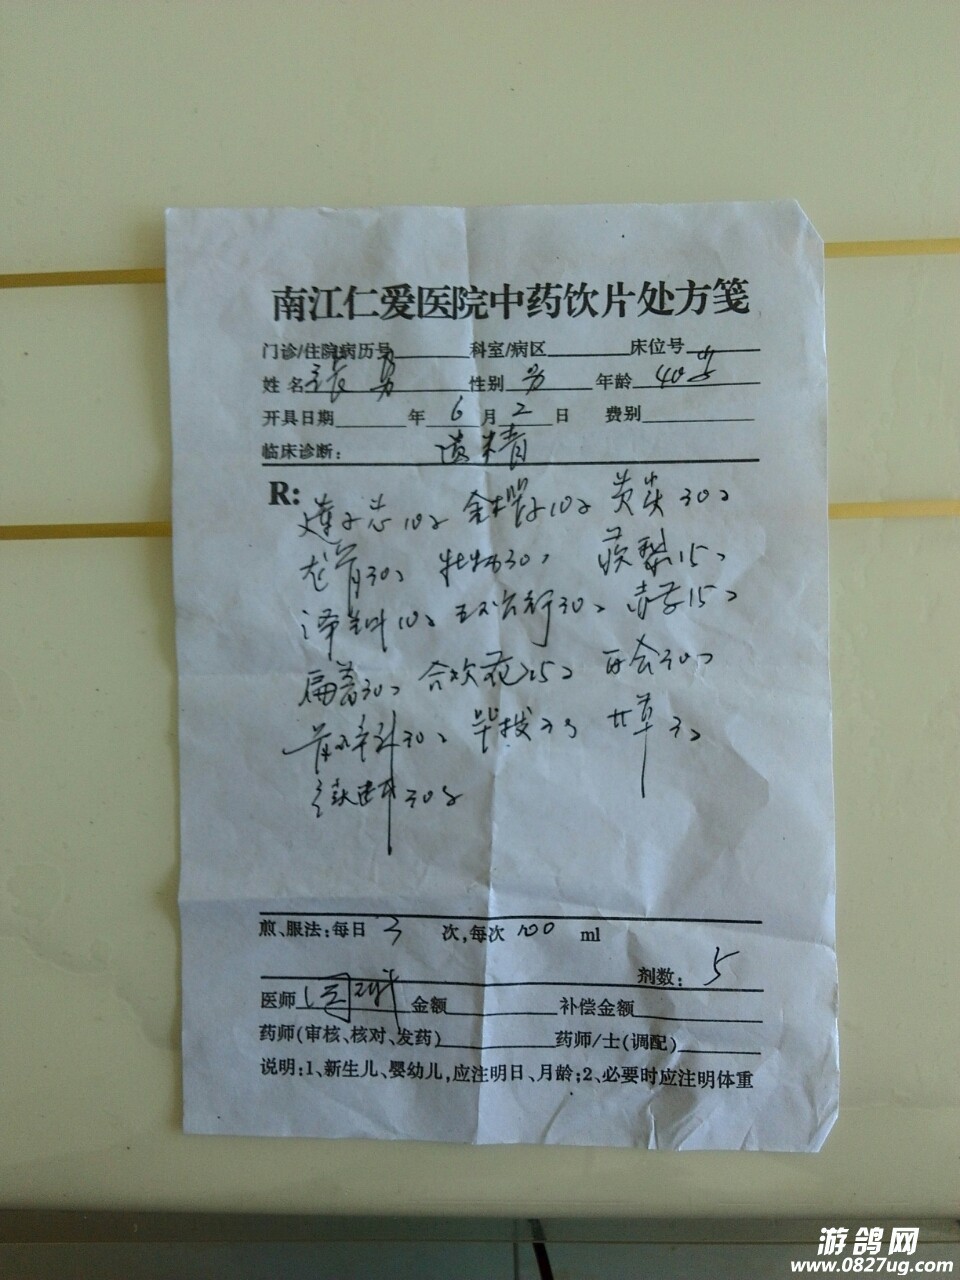 南江仁爱医院中药饮片处方笺
门诊/住院病历号 科室/病区 床位号
姓名 张勇 性别 男 年龄 40岁
开具日期 年 6 月 2 日 费别
临床诊断: 遗精
R:
莲子芯10g 金樱子10g 芡实30g
龙骨30g 牡蛎30g 蒺藜15g
泽 10g 王不留行30g 15g
扁蓄30g 合欢花15g 百合30g
30g 荜拨3g 甘草3g
续断30g
煎、服法:每日 3 次,每次 100 ml
剂数: 5
医师 金额 补偿金额
药师(审核、核对、发药) 药师/士(调配)
说明:1、新生儿、婴幼儿,应注明日、月龄;2、必要时应注明体重
游鸽网
www.0827ug.com